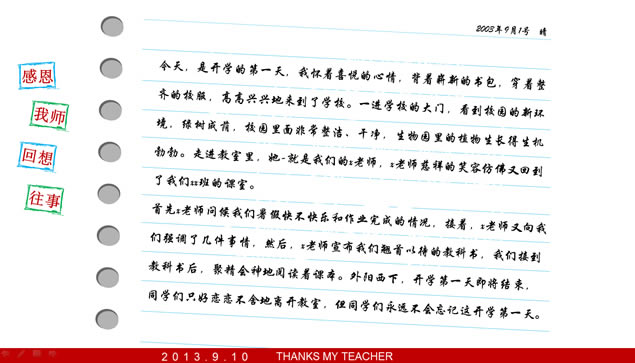 2003年9月1号 晴
感恩
我师
回想
往事
今天，是开学的第一天，我怀着喜悦的心情，背着崭新的书包，穿着整
齐的校服，高高兴兴地来到了学校。一进学校的大门，看到校园的新环
境，绿树成荫，校园里面非常整洁、干净，生物园里的植物生长得生机
勃勃。走进教室里，她-就是我们的x老师，x老师慈祥的笑容仿佛又回到
了我们xx班的课室。
首先x老师问候我们暑假快不快乐和作业完成的情况，接着，x老师又向我
们强调了几件事情，然后，x老师宣布我们翘首以待的教科书，我们接到
教科书后，聚精会神地阅读着课本。外阳西下，开学第一天即将结束，
同学们只好恋恋不舍地离开教室，但同学们永远不会忘记这开学第一天。
2013.9.10 THANKS MY TEACHER